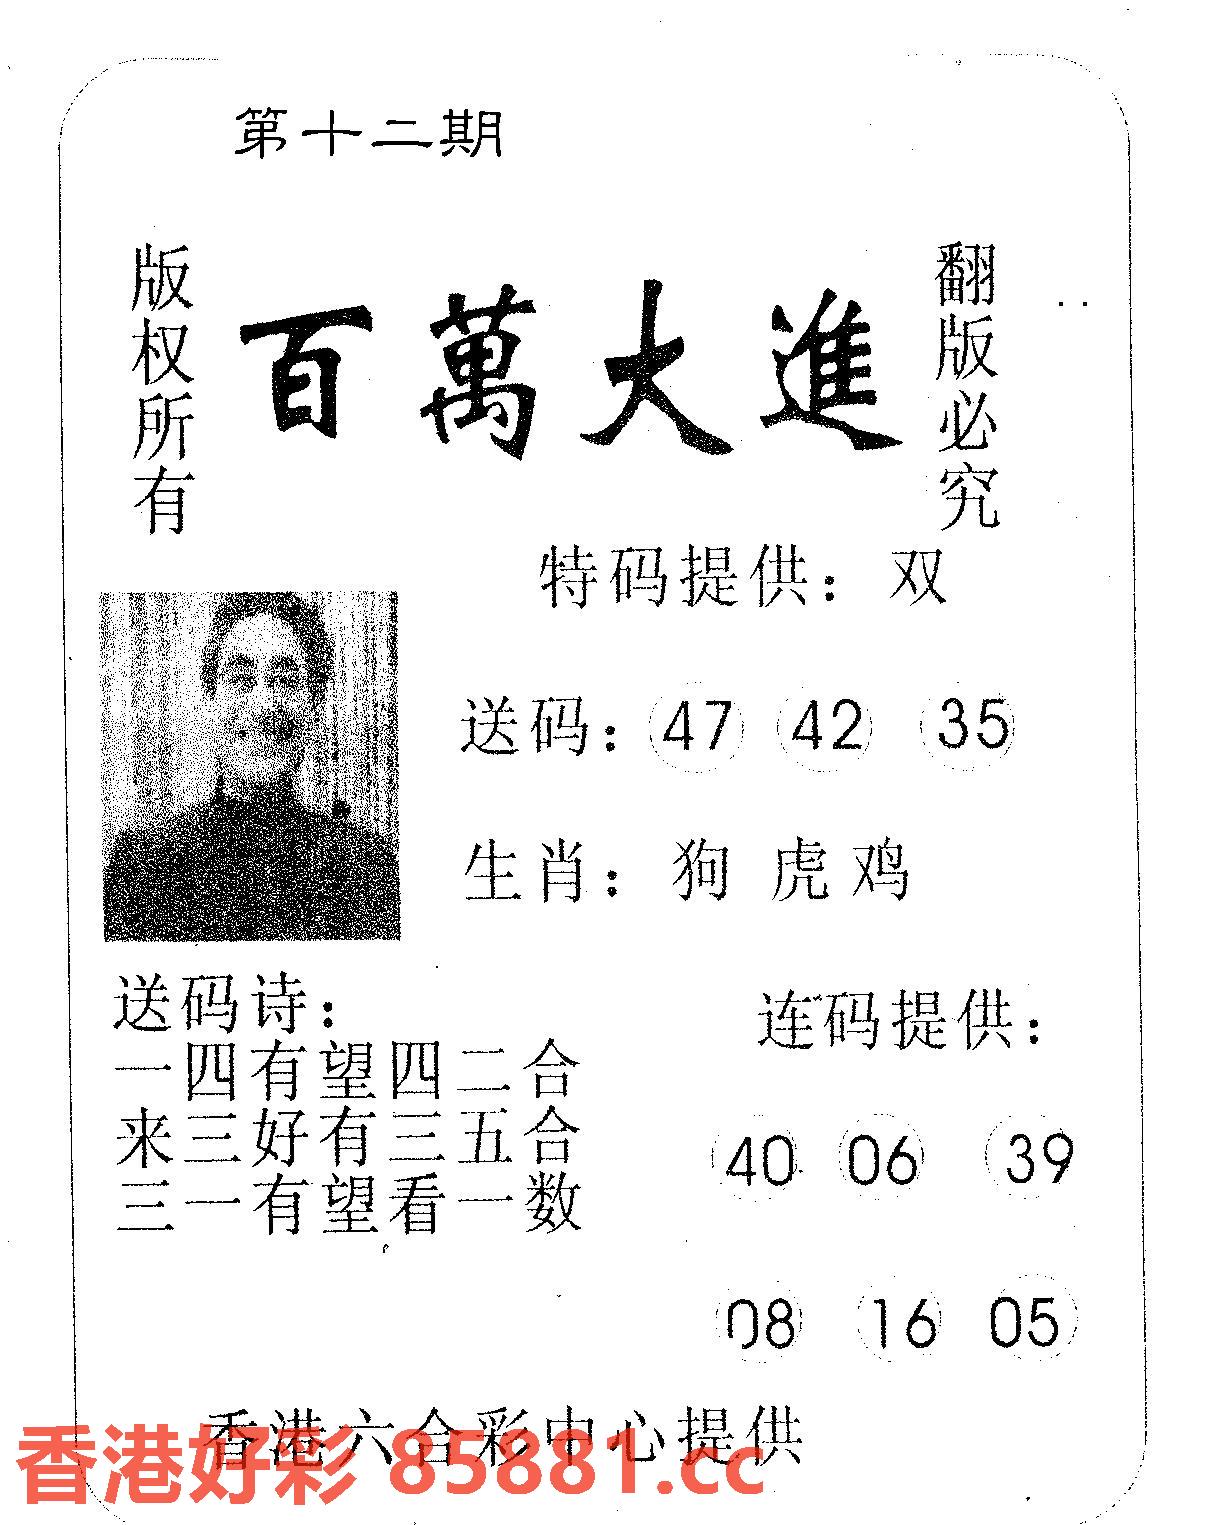 第十二期
版权所有
百萬大進
翻版必究
特码提供：双
送码：47 42 35
生肖：狗 虎 鸡
送码诗：
一四有望四二合
来三好有三五合
三一有望看一数
连码提供：
40 06 39
08 16 05
香港六合彩中心提供
香港好彩 85881.cc